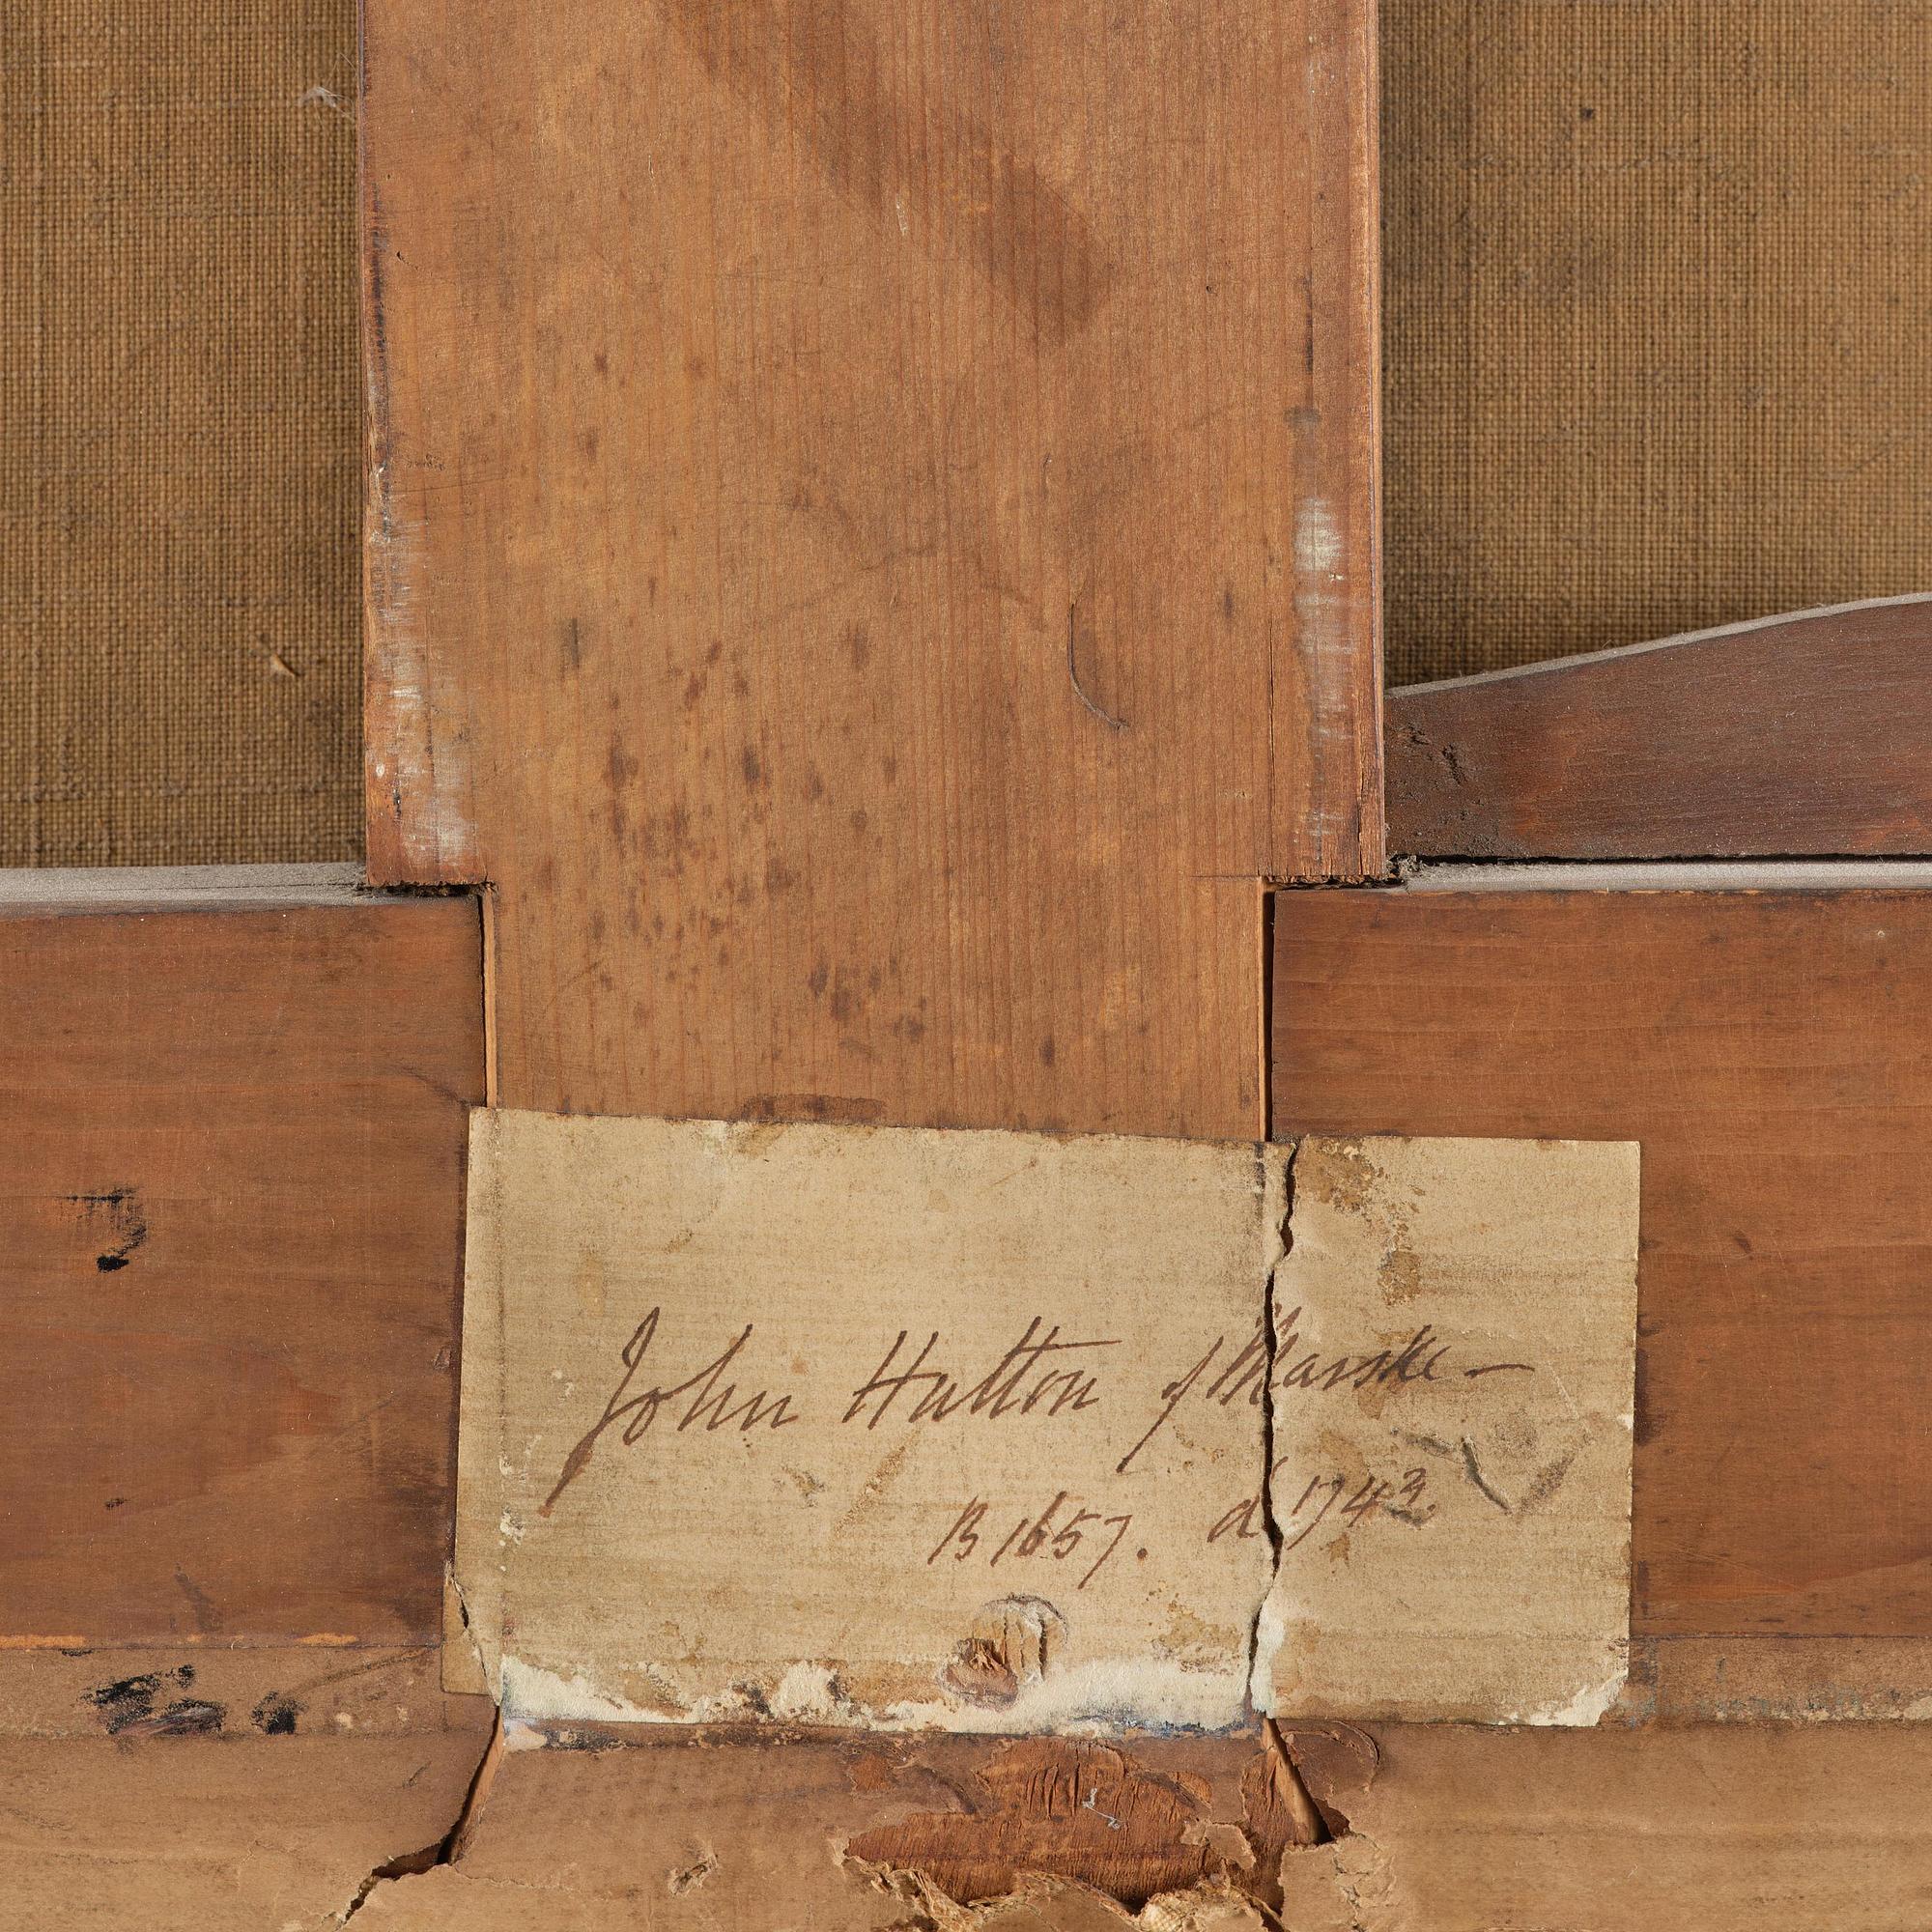 John Hutton of Marske –
B 1657. d 1743.